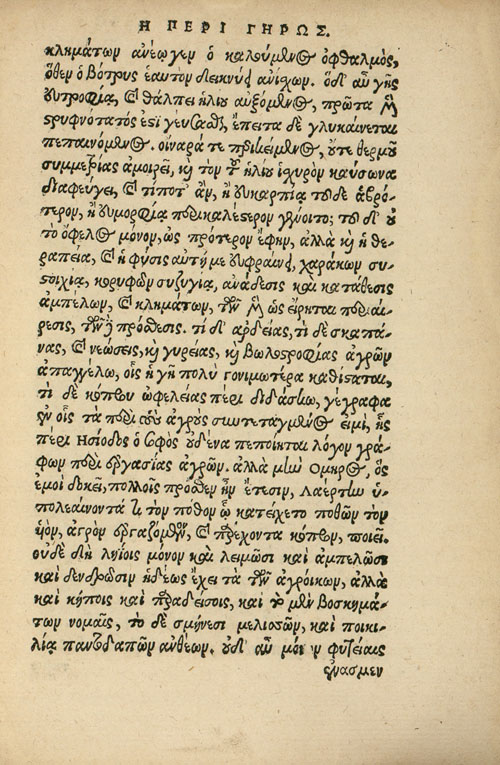 Η ΠΕΡΙ ΓΗΡΩΣ.
κλημάτων ἀνέῳγεν ὁ καλούμενος ὀφθαλμὸς,
ὅθεν ὁ βότρυς ἑαυτὸν δεικνύει ἀνίχων. ὃ δ' αὖ γῆς
εὐτροφίᾳ, καὶ θάλπει ἡλίου αὐξόμενος, πρῶτα μὲν
στρυφνότατός ἐστι γεύσασθαι, ἔπειτα δὲ γλυκαίνεται
πεπαινόμενος. οἴναρά τε περικείμενος, οὔτε θερμοῦ
συμμετρίας ἀμοιρεῖ, καὶ τὸν τοῦ ἡλίου ἰσχυρὸν καύσωνα
διαφεύγει, καὶ τίποτ' ἂν, ἢ εὐκαρπίᾳ τοῦδε ἁβρό-
τερον, ἢ εὐμορφίᾳ περικαλέστερον γένοιτο; τοῦ δ' οὐ
τὸ ὄφελος μόνον, ὡς πρότερον ἔφην, ἀλλὰ καὶ ἡ θε-
ραπεία, καὶ ἡ φύσις αὐτή με εὐφραίνει, χαράκων συ-
στοιχία, κορυφῶν συζυγία, ἀνάδεσις καὶ κατάθεσις
ἀμπέλων, καὶ κλημάτων, τῶν μὲν ὡς εἴρηται περιαί-
ρεσις, τῶν δὲ πρόσθεσις. τί δ' ἀρδείας, τί δὲ σκαπά-
νας, καὶ νεώσεις, καὶ γυρείας, καὶ βωλοστροφίας ἀγρῶν
ἀπαγγέλω, οἷς ἡ γῆ πολὺ γονιμωτέρα καθίσταται,
τί δὲ κόπρου ὠφελείας πέρι διδάσκω, γέγραφα
ἐν οἷς τὰ περὶ τοὺς ἀγροὺς συντεταγμένος εἰμὶ, ἧς
πέρι Ησίοδος ὁ σοφὸς οὐδένα πεποίηται λόγον γρά-
φων περὶ ἐργασίας ἀγρῶν. ἀλλὰ μὴν Ομηρος, ὃς
ἐμοὶ δοκεῖ, πολλοῖς πρόσθεν ἦν ἔτεσιν, Λαέρτην ὑ-
πολεαίνοντά τι τὸν πόθον ᾧ κατείχετο ποθῶν τὸν
υἱὸν, ἀγρὸν ἐργαζόμενον, καὶ παρέχοντα κόπρον, ποιεῖ.
οὐδὲ δὴ ληίοις μόνον καὶ λειμῶσι καὶ ἀμπελῶσι
καὶ δενδρῶσιν ἡδέως ἔχει τὰ τῶν ἀγροίκων, ἀλλὰ
καὶ κήποις καὶ παραδείσοις, καὶ τὸ μὲν βοσκημά-
των νομαῖς, τὸ δὲ σμήνεσι μελισσῶν, καὶ ποικι-
λίᾳ παντοδαπῶν ἀνθέων. οὐδ' αὖ μόνον φυτείαις